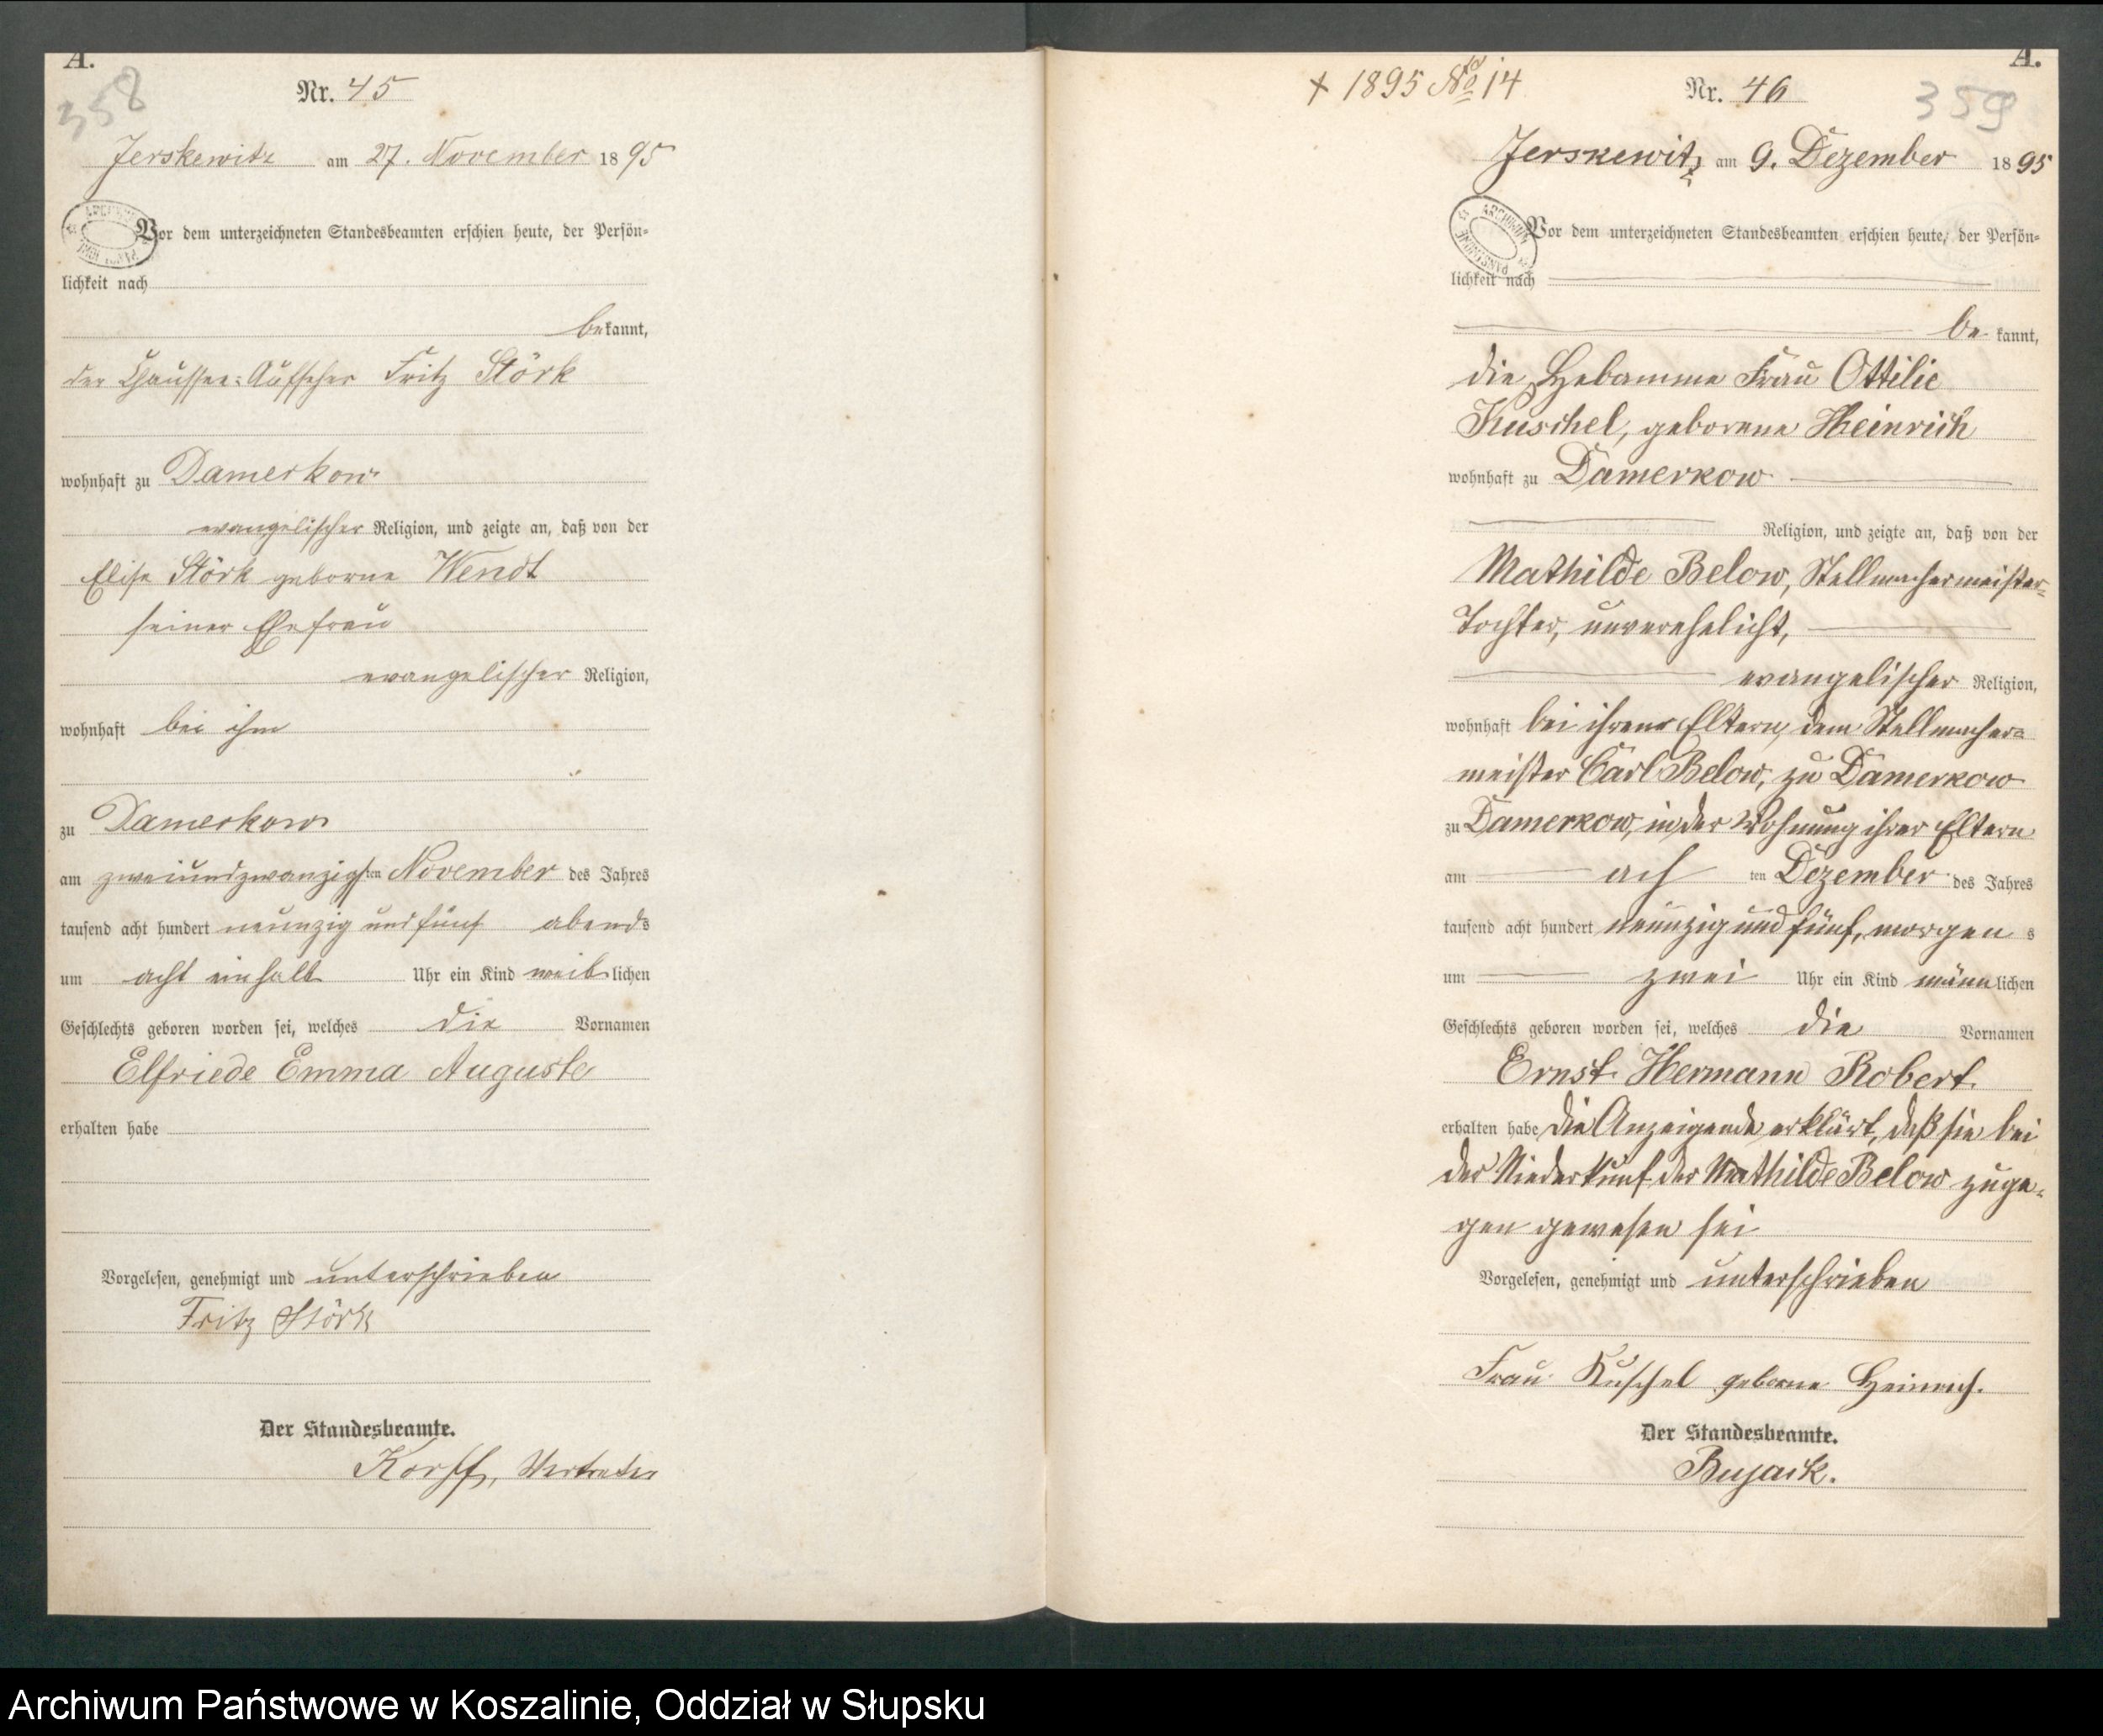 A.
358
Nr. 45
Jerskewitz am 27. November 1895
Vor dem unterzeichneten Standesbeamten erschien heute, der Persön=
lichkeit nach
bekannt,
der Chaussee-Aufseher Fritz Störk
wohnhaft zu Damerkow
evangelischer Religion, und zeigte an, daß von der
Elise Störk geborne Wendt
seiner Ehefrau
evangelischer Religion,
wohnhaft bei ihm
zu Damerkow
am zweiundzwanzigsten November des Jahres
tausend acht hundert neunzig und fünf abends
um acht einhalb Uhr ein Kind weiblichen
Geschlechts geboren worden sei, welches die Vornamen
Elfriede Emma Auguste
erhalten habe
Vorgelesen, genehmigt und unterschrieben
Fritz Störk
Der Standesbeamte.
Korff, Vertreter
A.
+ 1895 No 14
Nr. 46
359
Jerskewitz am 9. Dezember 1895
Vor dem unterzeichneten Standesbeamten erschien heute, der Persön=
lichkeit nach
be kannt,
die Hebamme Frau Ottilie
Kuschel, geborene Heinrich
wohnhaft zu Damerkow
Religion, und zeigte an, daß von der
Mathilde Below, Stellmachermeister=
Tochter, unverehelicht,
evangelischer Religion,
wohnhaft bei ihren Eltern, dem Stellmacher=
meister Carl Below, zu Damerkow
zu Damerkow, in der Wohnung ihrer Eltern
am ach ten Dezember des Jahres
tausend acht hundert neunzig und fünf, morgen s
um zwei Uhr ein Kind männlichen
Geschlechts geboren worden sei, welches die Vornamen
Ernst Hermann Robert
erhalten habe die Anzeigende erklärt, daß sie bei
der Niederkunft der Mathilde Below zuge=
gen gewesen sei
Vorgelesen, genehmigt und unterschrieben
Frau Kuschel geborne Heinrich.
Der Standesbeamte.
Bujack.
Archiwum Państwowe w Koszalinie, Oddział w Słupsku